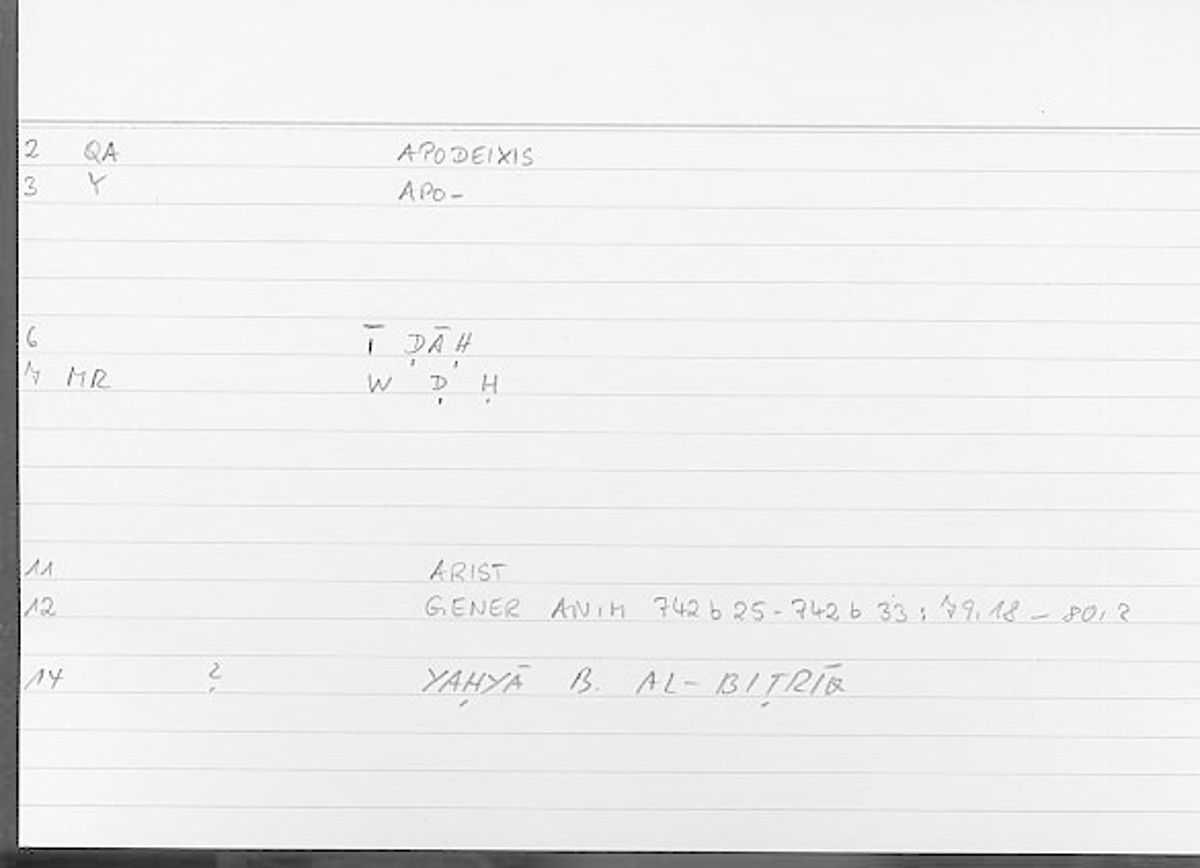 2 QA APODEIXIS
3 Y APO-
6 Ī ḌĀḤ
7 MR W Ḍ Ḥ
11 ARIST
12 GENER ANIM 742 b 25 - 742 b 33 : 79,18 - 80,2
14 ? YAḤYĀ B. AL-BIṬRĪQ